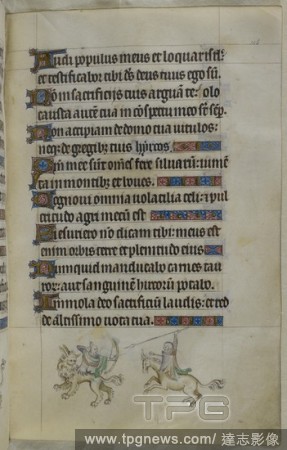 Audi populus meus et loquar isrl:
et testificabor tibi ds deus tuus ego sū.
Non in sacrificijs tuis arguā te: olo
causta autē tua in cōspectu meo sūt sēp.
Non accipiam de domo tua vitulos:
neqz de gregibz tuis hyrcos.
Qm̄ mee sūt om̄s fere siluarū: iumēta
ta in montibz et boues.
Cognoui omnia volatilia celi: et pul
critudo agri mecū est.
Si esuriero nō dicam tibi: meus est
enim orbis terre et plenitudo eius.
Numquid manducabo carnes tau
ror: aut sanguinē hircorū potabo.
Immola deo sacrificiū laudis: et red
de altissimo vota tua.
TPG
www.tpgnews.com / 達志影像